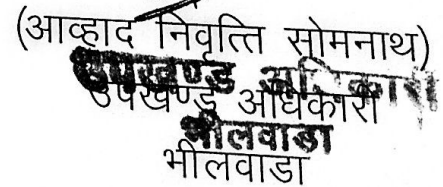 (आव्हाद निर्वृत्ति सोमनाथ)
उपखण्ड अधिकारी
उपखण्ड अधिकारी
भीलवाडा
भीलवाडा